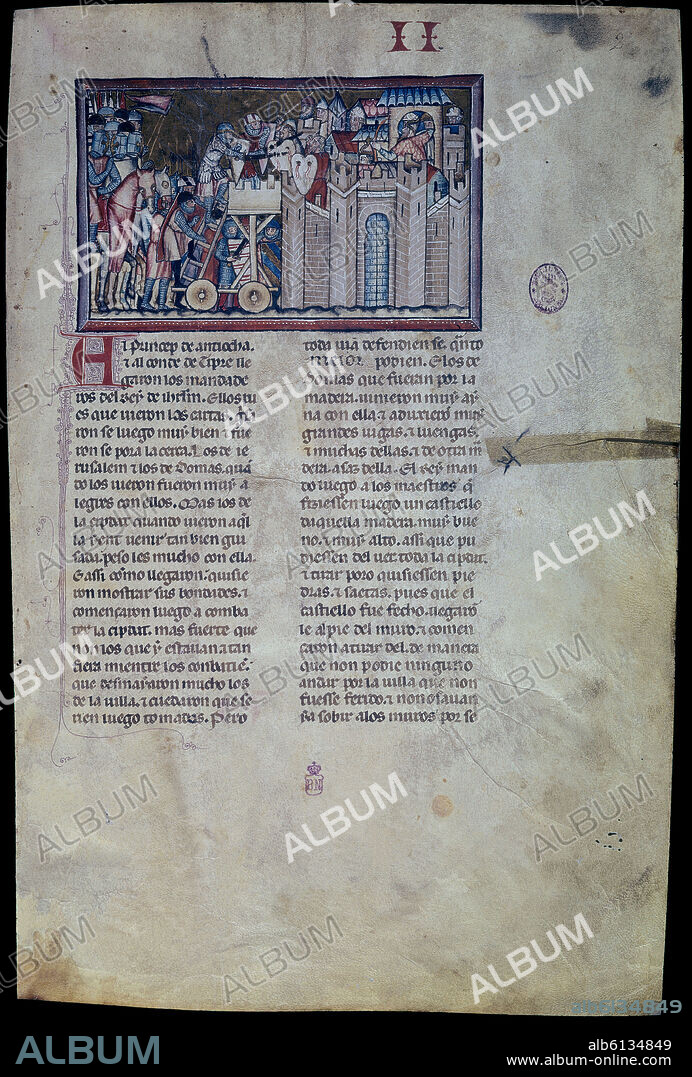 II
El Princep de antiocha.
⁊ al conde de Tipre lle
garon los mandade
ros del Rey de ihrlm. Ellos lu
es que vieron las cartas
ron se luego muy bien ⁊ fue
ron se pora la cerca. Los de ie
rusalem ⁊ los de Domas. quā
do los vieron fueron muy a
legres con ellos. Mas los de
la cipdat quando vieron aq̄l
la yent venir tan bien gui
sada. peso les mucho con ella.
E assi cōmo llegaron. quisie
ron mostrar sus bondades. ⁊
començaron luego a comba
ter la cipdat. mas fuerte que
non los que y estauan a tan
fiera mientre los conbatiē.
que desmayaron mucho los
de la uilla. ⁊ cuedaron que se
rien luego tomados. Pero
toda uia defendien se. quāto
meior podien. E los de
Domas que fueran por la
madera. uinieron muy ay
na con ella ⁊ aduxieron muy
grandes uigas. ⁊ luengas.
⁊ muchas dellas. ⁊ de otra m
dera. asaz della. El Rey man
do luego a los maestros q̄
fiziessen luego un castiello
daquella madera. muy bue
no. ⁊ muy alto. assi que pu
diessen del uer toda la cipdat.
⁊ tirar poro quisiessen pie
dras. ⁊ saetas. pues que el
castiello fue fecho. llegarō
le al pie del muro. ⁊ comen
çaron a tirar del. de manera
que non podie ninguno
andar por la uilla que non
fuesse ferido. ⁊ non osauan
ya sobir a los muros por se
BN
ALBUM
alb6134849
www.album-online.com